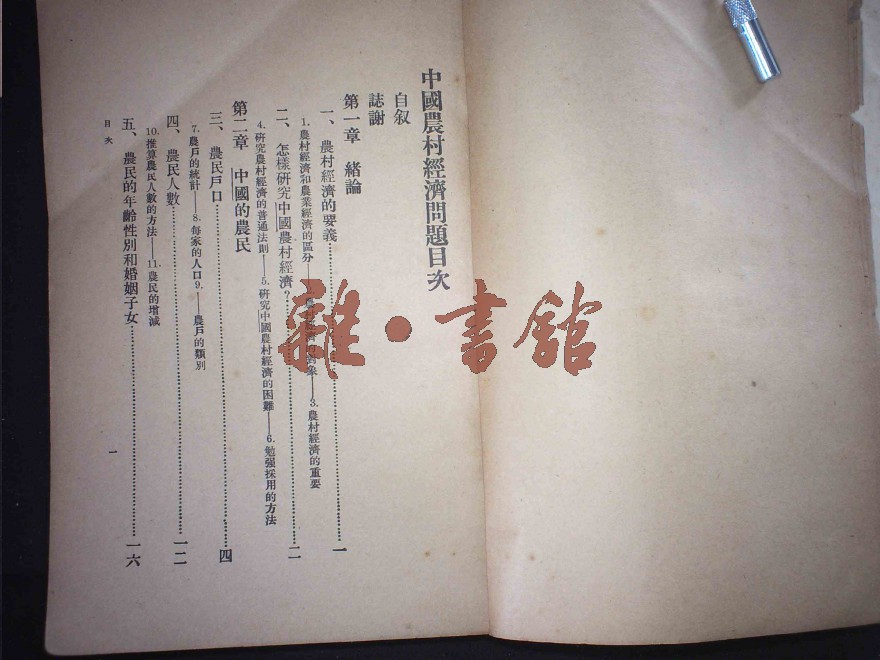 中國農村經濟問題目次
自叙
誌謝
第一章 緒論
一、農村經濟的要義……一
1. 農村經濟和農業經濟的區分——2. 農村經濟的對象——3. 農村經濟的重要
二、怎樣研究中國農村經濟?……二
4. 研究農村經濟的普通法則——5. 研究中國農村經濟的困難——6. 勉强採用的方法
第二章 中國的農民
三、農民戶口……四
7. 農戶的統計——8. 每家的人口9.——農戶的類別
四、農民人數……一二
10. 推算農民人數的方法——11. 農民的增減
五、農民的年齡性別和婚姻子女……一六
目次
一
雜·書館